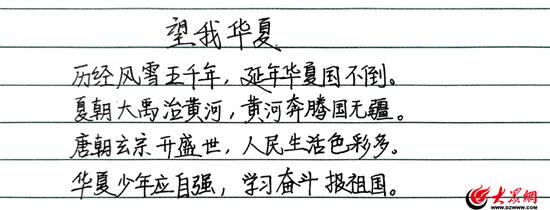 望我华夏
历经风雪五千年，延年华夏国不倒。
夏朝大禹治黄河，黄河奔腾国无疆。
唐朝玄宗开盛世，人民生活色彩多。
华夏少年应自强，学习奋斗报祖国。
大众网
WWW.DZWWW.COM